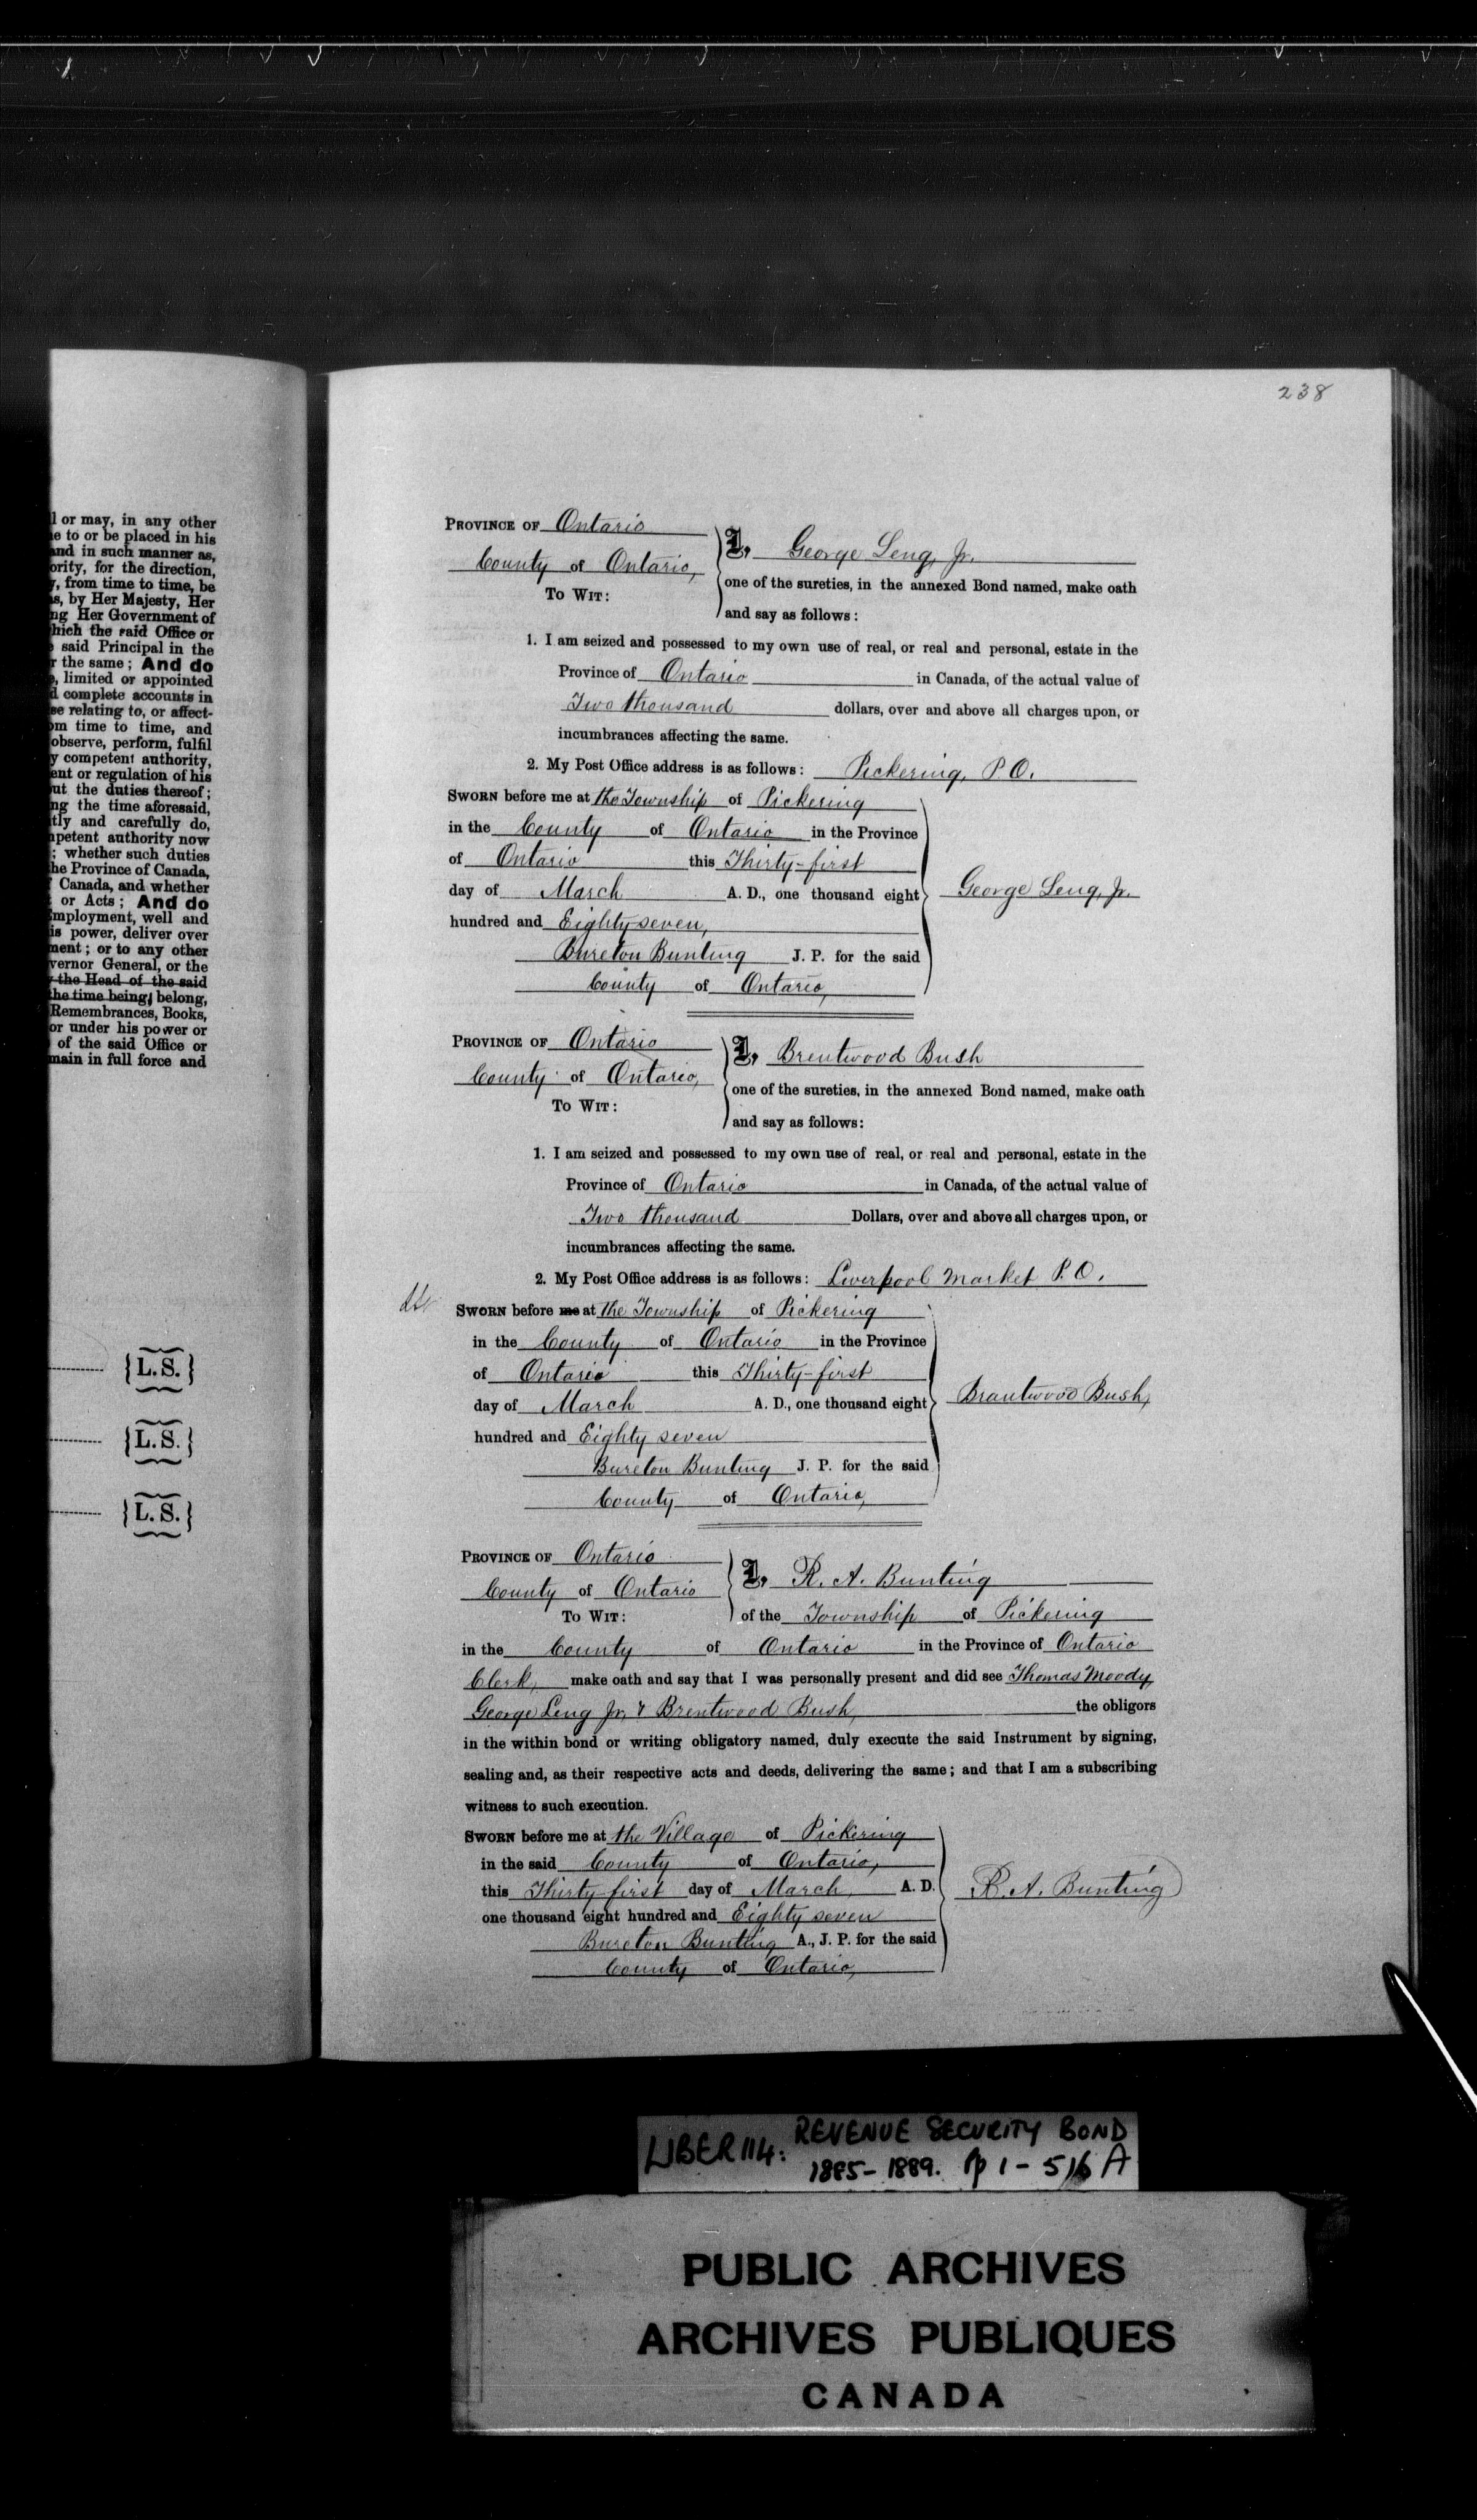 238
l or may, in any other
e to or be placed in his
and in such manner as,
ority, for the direction,
y, from time to time, be
s, by Her Majesty, Her
ng Her Government of
hich the said Office or
said Principal in the
r the same; And do
e, limited or appointed
d complete accounts in
se relating to, or affect-
om time to time, and
observe, perform, fulfil
y competent authority,
ent or regulation of his
ut the duties thereof;
ng the time aforesaid,
tly and carefully do,
npetent authority now
; whether such duties
he Province of Canada,
Canada, and whether
or Acts; And do
mployment, well and
is power, deliver over
ment; or to any other
vernor General, or the
the Head of the said
the time being, belong,
Remembrances, Books,
or under his power or
of the said Office or
main in full force and
{L. S.}
{L. S.}
{L. S.}
PROVINCE OF Ontario
County of Ontario,
TO WIT:
I, George Leng, Jr.
one of the sureties, in the annexed Bond named, make oath
and say as follows:
1. I am seized and possessed to my own use of real, or real and personal, estate in the
Province of Ontario in Canada, of the actual value of
Two thousand dollars, over and above all charges upon, or
incumbrances affecting the same.
2. My Post Office address is as follows: Pickering, P.O.
SWORN before me at the Township of Pickering
in the County of Ontario in the Province
of Ontario this Thirty-first
day of March A. D., one thousand eight
hundred and Eighty seven,
Bureton Bunting J. P. for the said
County of Ontario,
George Leng, Jr.
PROVINCE OF Ontario
County of Ontario,
TO WIT:
I, Brentwood Bush
one of the sureties, in the annexed Bond named, make oath
and say as follows:
1. I am seized and possessed to my own use of real, or real and personal, estate in the
Province of Ontario in Canada, of the actual value of
Two thousand Dollars, over and above all charges upon, or
incumbrances affecting the same.
2. My Post Office address is as follows: Liverpool Market P.O.
SWORN before me at the Township of Pickering
in the County of Ontario in the Province
of Ontario this Thirty-first
day of March A. D., one thousand eight
hundred and Eighty seven
Bureton Bunting J. P. for the said
County of Ontario,
Brantwood Bush,
PROVINCE OF Ontario
County of Ontario
TO WIT:
I, R. A. Bunting
of the Township of Pickering
in the County of Ontario in the Province of Ontario
Clerk, make oath and say that I was personally present and did see Thomas Moody,
George Leng Jr, & Brentwood Bush, the obligors
in the within bond or writing obligatory named, duly execute the said Instrument by signing,
sealing and, as their respective acts and deeds, delivering the same; and that I am a subscribing
witness to such execution.
SWORN before me at the Village of Pickering
in the said County of Ontario,
this Thirty-first day of March A. D.
one thousand eight hundred and Eighty seven
Bureton Bunting A., J. P. for the said
County of Ontario,
R. A. Bunting
LIBER 114: REVENUE SECURITY BOND
1885-1889. pp 1-516 A
PUBLIC ARCHIVES
ARCHIVES PUBLIQUES
CANADA